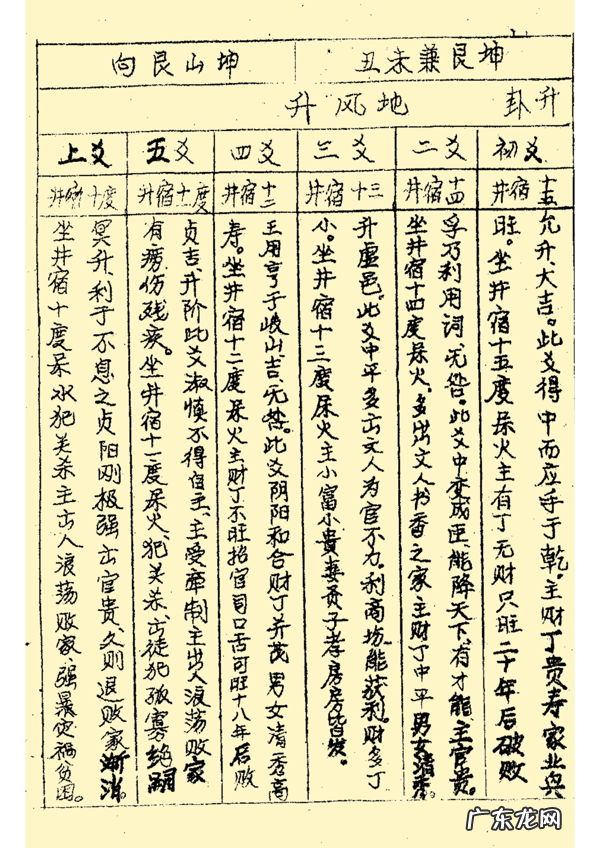 丑未兼艮坤
坤山艮向
升卦
地风升
初爻
井宿十五
允升、大吉。此爻得中而应乎于乾。主财丁贵寿家业兴
旺。坐井宿十五度屎火主有丁无财只旺二十年后破败
二爻
井宿十四
孚乃利用词,无咎。此爻中变成正,能降天下,有才能,主官贵。
坐井宿十四度屎火,多出文人书香之家主财丁中平男女清秀。
三爻
井宿十三
升虚邑。此爻中平多出文人为官不力。利商坊能获利。财多丁
小。坐井宿十三度屎火主小富小贵妻贵子孝房房皆发。
四爻
井宿十二
王用亨于岐山,吉、无咎。此爻阴阳和合财丁并茂男女清秀高
寿。坐井宿十二度屎火主财丁不旺招官司口舌可旺十八年后败
五爻
井宿十一度
贞吉、升阶此爻淑慎不得自主、主受牵制主出人浪荡败家
有痨伤残疾。坐井宿十一度屎火、犯关杀、出徒犯孤寡绝嗣
上爻
井宿十度
冥升、利于不息之贞阳刚极强出官贵、久则退败家渐消。
坐井宿十度屎水犯关杀主出人浪荡败家强暴灾祸贫困。
广东龙网